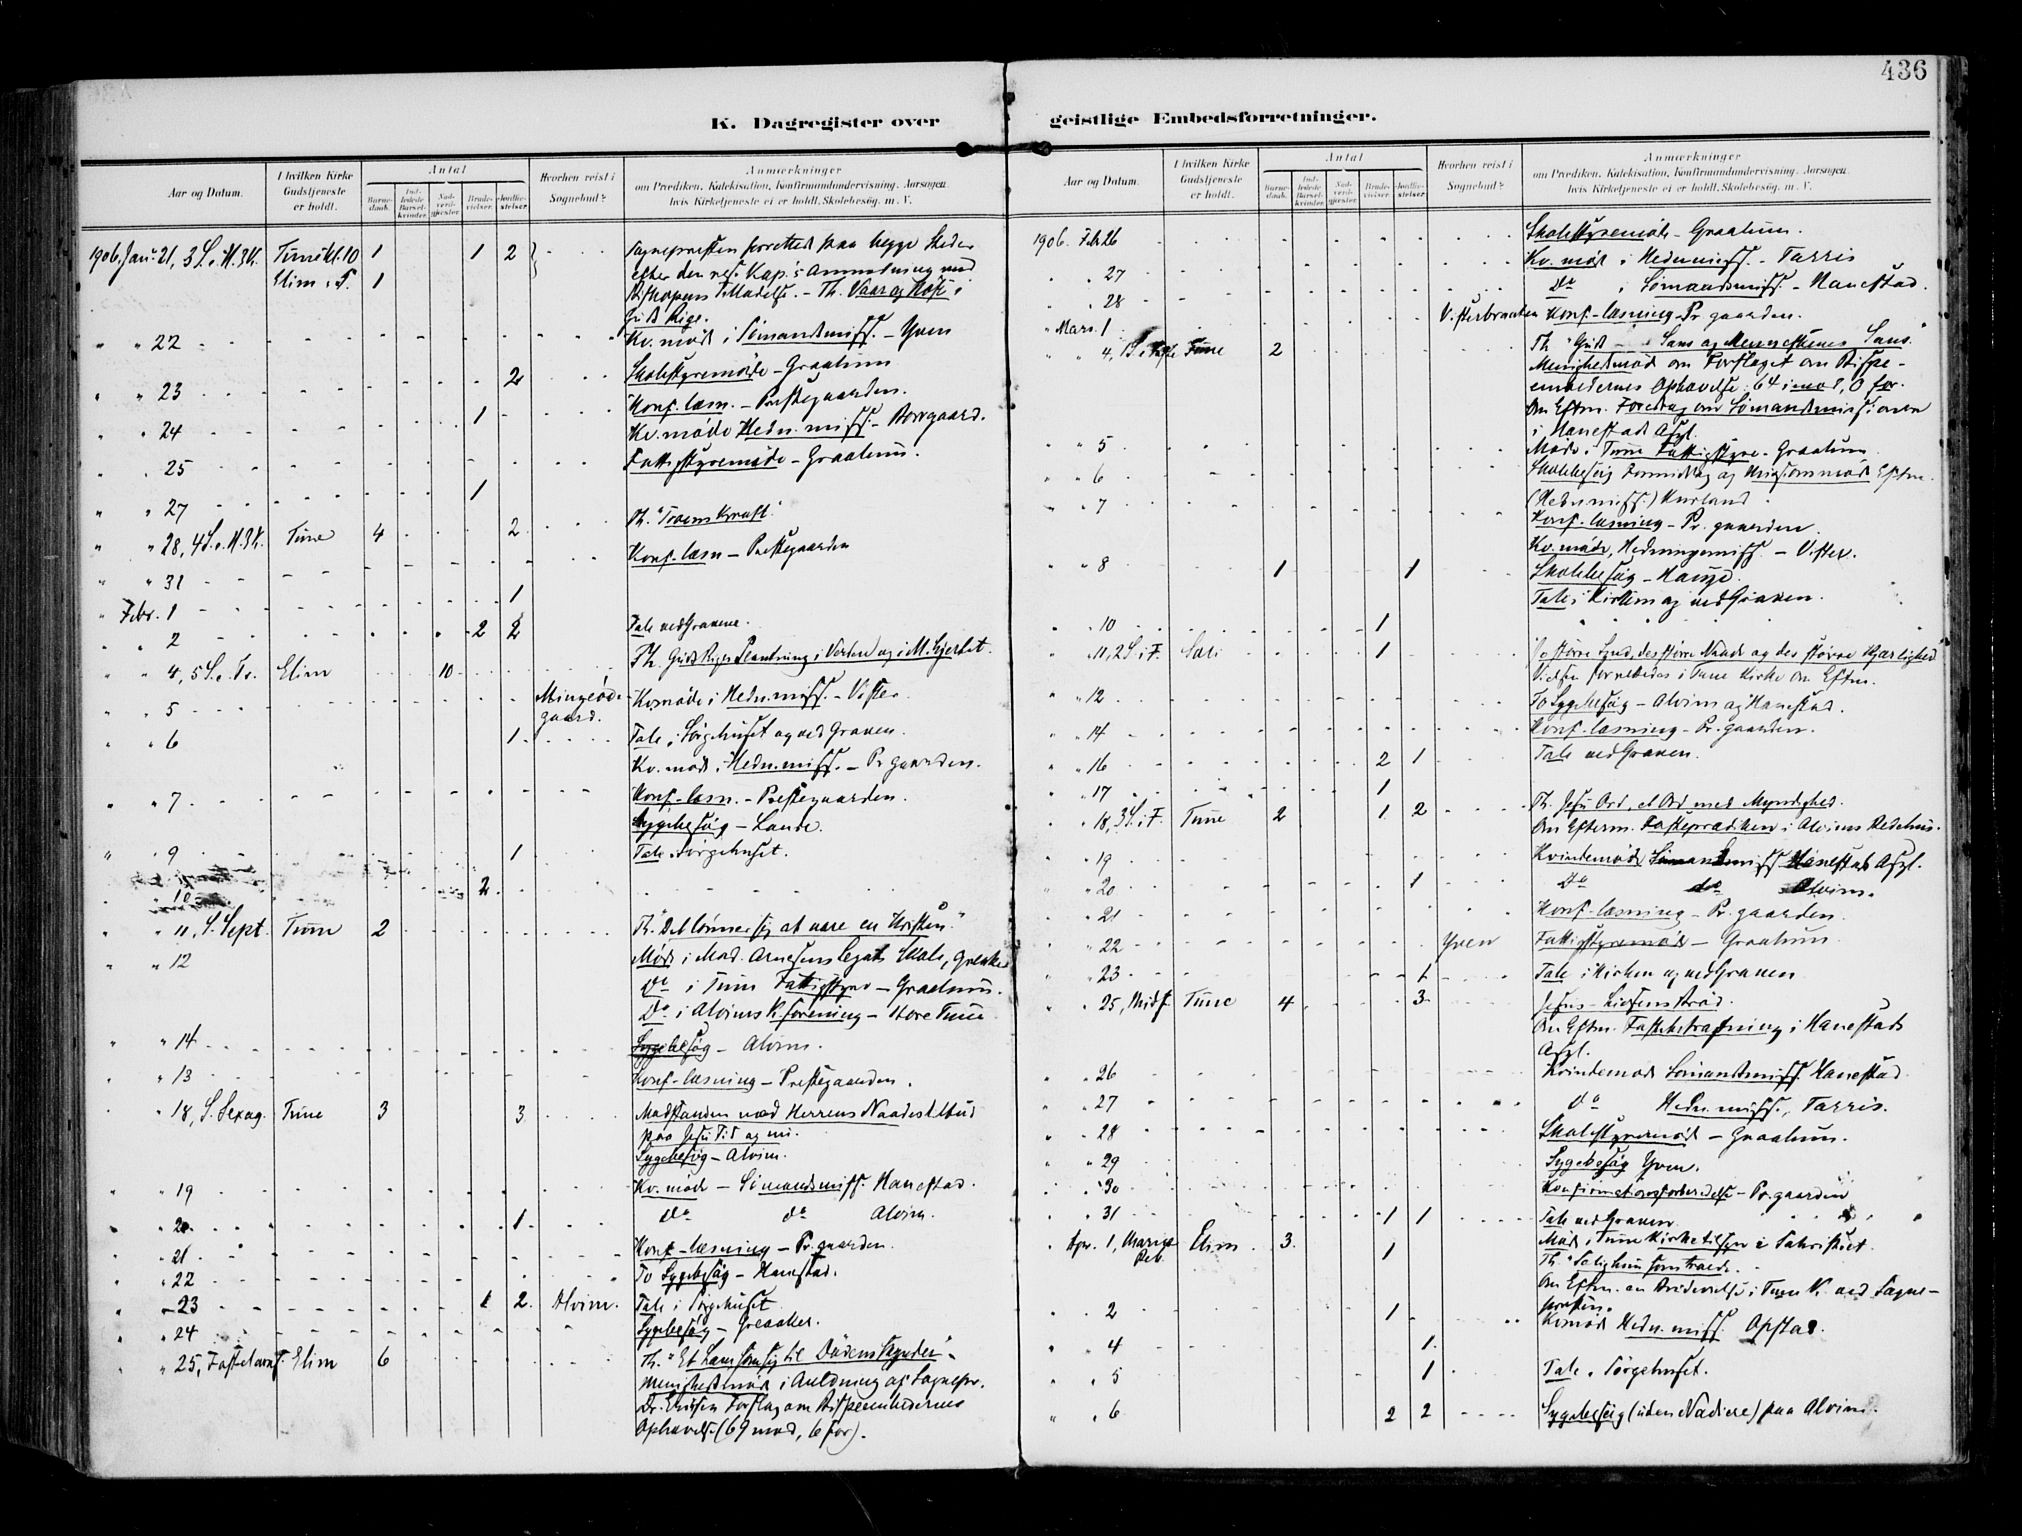 436
K. Dagregister over geistlige Embedsforretninger.
Aar og Datum. I hvilken Kirke Gudstjeneste er holdt. Antal Barnedaab. Indledede Barselkvinder. Nadverdgjæster. Brudevielser. Jordfæstelser. Hvorhen reist i Sognebud? Anmærkninger om Prædiken, Katekisation, Konfirmandundervisning, Aarsagen hvis Kirketjeneste ei er holdt, Skolebesøg, m. V.
1906. Jan. 21, 3 S. e. H.3K. Tune kl. 10 1 1 2 Sognepræsten forrettet paa begge Steder
Elim 1 efter den res. Kap.'s Anmodning med
Biskopens Tilladelse. - Th.
Guds Rige.
" " 22 Kv. møde i Sømandsmiss. - Yven
" " 23 2 Skolestyremøde - Graalum
Konf. læsn. - Prestegaarden.
" " 24 1 Kv. møde Hedn. miss. - Borgaard.
" " 25 Fattigstyremøde - Graalum.
" " 27 1
" " 28, 4 S. e. H.3K. Tune 4 2 Th. "Troens Kraft."
" " 31 Konf. læsn - Prestegaarden
" Febr. 1 1
" " 2 2 2 Tale ved Gravene.
" " 4, 5 S. e. Elim 10 Th. Guds Riges Plantning i Verden og i M.hjertet.
" " 5 Kv.møde i Hedn. miss. - Vister
gaard.
" " 6 1 Tale i Sørgehuset og ved Graven.
Kv. møde i Hedn. miss. - Pr gaarden.
" " 7 Konf. læsn. - Prestegaarden.
Sygebesøg - Lande.
" " 9 1 Tale i Sørgehuset.
" " 10 2
" " 11, S. Sept. Tune 2 Th. "Det lønner sig at være en Kristen."
" " 12 Møde i Mad. Arnesens legats Skole, Greaker
Do i Tune Fattigstyre - Graalum.
Do i Alvims K. forening - Store Tune
" " 14 Sygebesøg - Alvim.
" " 13 Konf. læsning - Prestegaarden.
" " 18, S. Sexag. Tune 3 3 Modstanden mod Herrens Naadestilbud
paa Jesu Tid og nu.
Sygebesøg - Alvim.
" " 19 Kv. møde - Sømandsmiss. Hanestad.
" " 20 1 do do Alvim.
" " 21 Konf. læsning - Pr. gaarden.
" " 22 To Sygebesøg - Hanestad.
" " 23 1 2 Alvim. Tale i Sørgehuset
" " 24 Sygebesøg - Greaaker.
" " 25, Fastelavns. Elim 6 Th. "Et Lam
Menighedsmøde i Anledning af Sognepr.
Dr. Forslag om Bispeembedernes
Ophævelse (69 mod, 6 for).
1906. Feb 26 Skolestyremøde - Graalum.
" " 27 Kv. møde i Hedn. miss. - Tarris
" " 28 Do i Sømandsmiss. - Hanestad.
" Mars. 1 Visterbraaten Konf. læsning - Pr gaarden.
" " 4, 1 S. i Faste Tune 2 Th "Guds Sans og Menneskenes Sans."
Menighedsmøde om Forslaget om Bispe-
embedernes Ophævelse: 64 imod, 0 for.
Om Eftm. Foredrag om Sømandsmissionen
i Hanestad Asyl.
" " 5 Møde i Tune Fattigstyre. Graalum
" " 6 Skolebesøg Formiddag og Missionsmøde Eftm.
" " 7 (Hedn. miss.) Kurland
Konf. læsning - Pr. gaarden.
Kv. møde, Hedningemiss. - Vister.
" " 8 1 1 Skolebesøg - Hauge.
Tale i Kirken og ved Graven.
" " 10 1
" " 11, 2 S. i F. Sari 1 Jo større Synd, des større Naade og des større Kjærlighed
Vielsen forrettedes i Tune Kirke om Eftm.
" " 12 To Sygebesøg - Alvim og Hanestad.
" " 14 Konf. læsning - Pr. gaarden.
" " 16 2 1 Tale ved Graven.
" " 17 1
" " 18, 3 S. i F. Tune 2 1 2 Th. Jesu Ord, et Ord med Myndighed.
Om Efterm. Fasteprædiken i Alvims Bedehus.
" " 19 Kvindemøde Sømandsmiss. Hanestads Asyl.
" " 20 1 Do do Alvim.
" " 21 Konf. læsning - Pr. gaarden.
" " 22 Yven Fattigstyremøde - Graalum
" " 23 1 Tale i Kirken og ved Graven
" " 25, Midf. Tune 4 3 Jesus - Livsens Brød.
Om Eftm. Fastebetragtning i Hanestads
Asyl.
" " 26 Kvindemøde Sømandsmiss. Hanestad
" " 27 do Hedn. miss., Tarris.
" " 28 Skolestyremøde - Graalum.
" " 29 Sygebesøg Yven.
" " 30 Konfirmationsforberedelse - Pr. gaarden
" " 31 1 1 Tale ved Graven
" Apr. 1, Mariæ Beb. Elim 3 1 Møde i Tune Kirketilsyn i Sakristiet.
Th. "Salig hun som troede."
Om Eftm. en Brudevielse i Tune K. ved Sogne-
presten.
" " 2 1 Kv.møde Hedn. miss. Opstad.
" " 4 1
" " 5 1 Tale i Sørgehuset.
" " 6 2 2 Sygebesøg (uden Nadvere) paa Alvim.